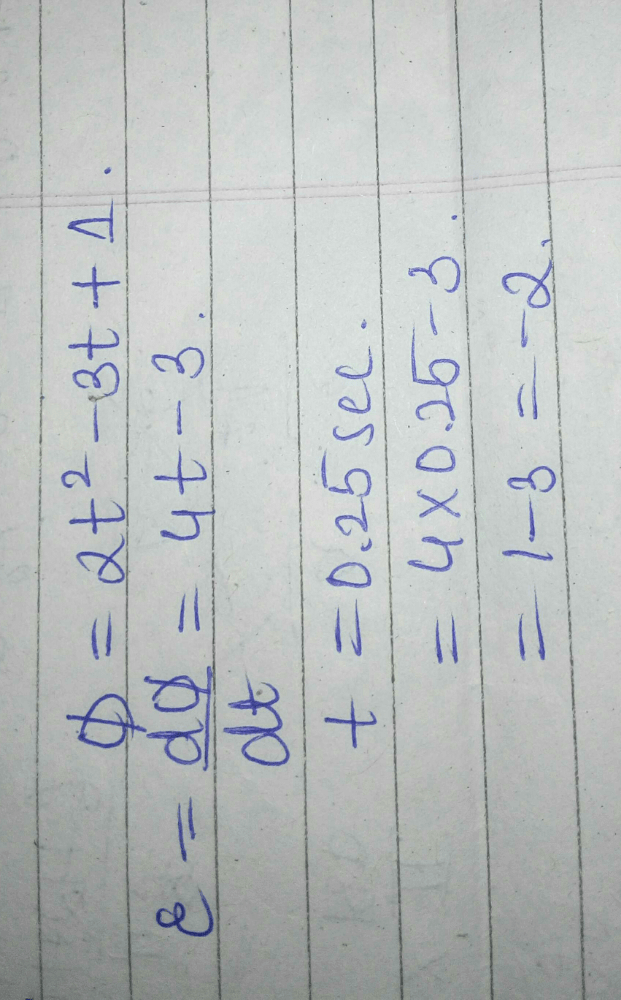 ϕ = 2t² - 3t + 1.
ε = dϕ/dt = 4t - 3.
t = 0.25 sec.
= 4 × 0.25 - 3.
= 1 - 3 = -2.